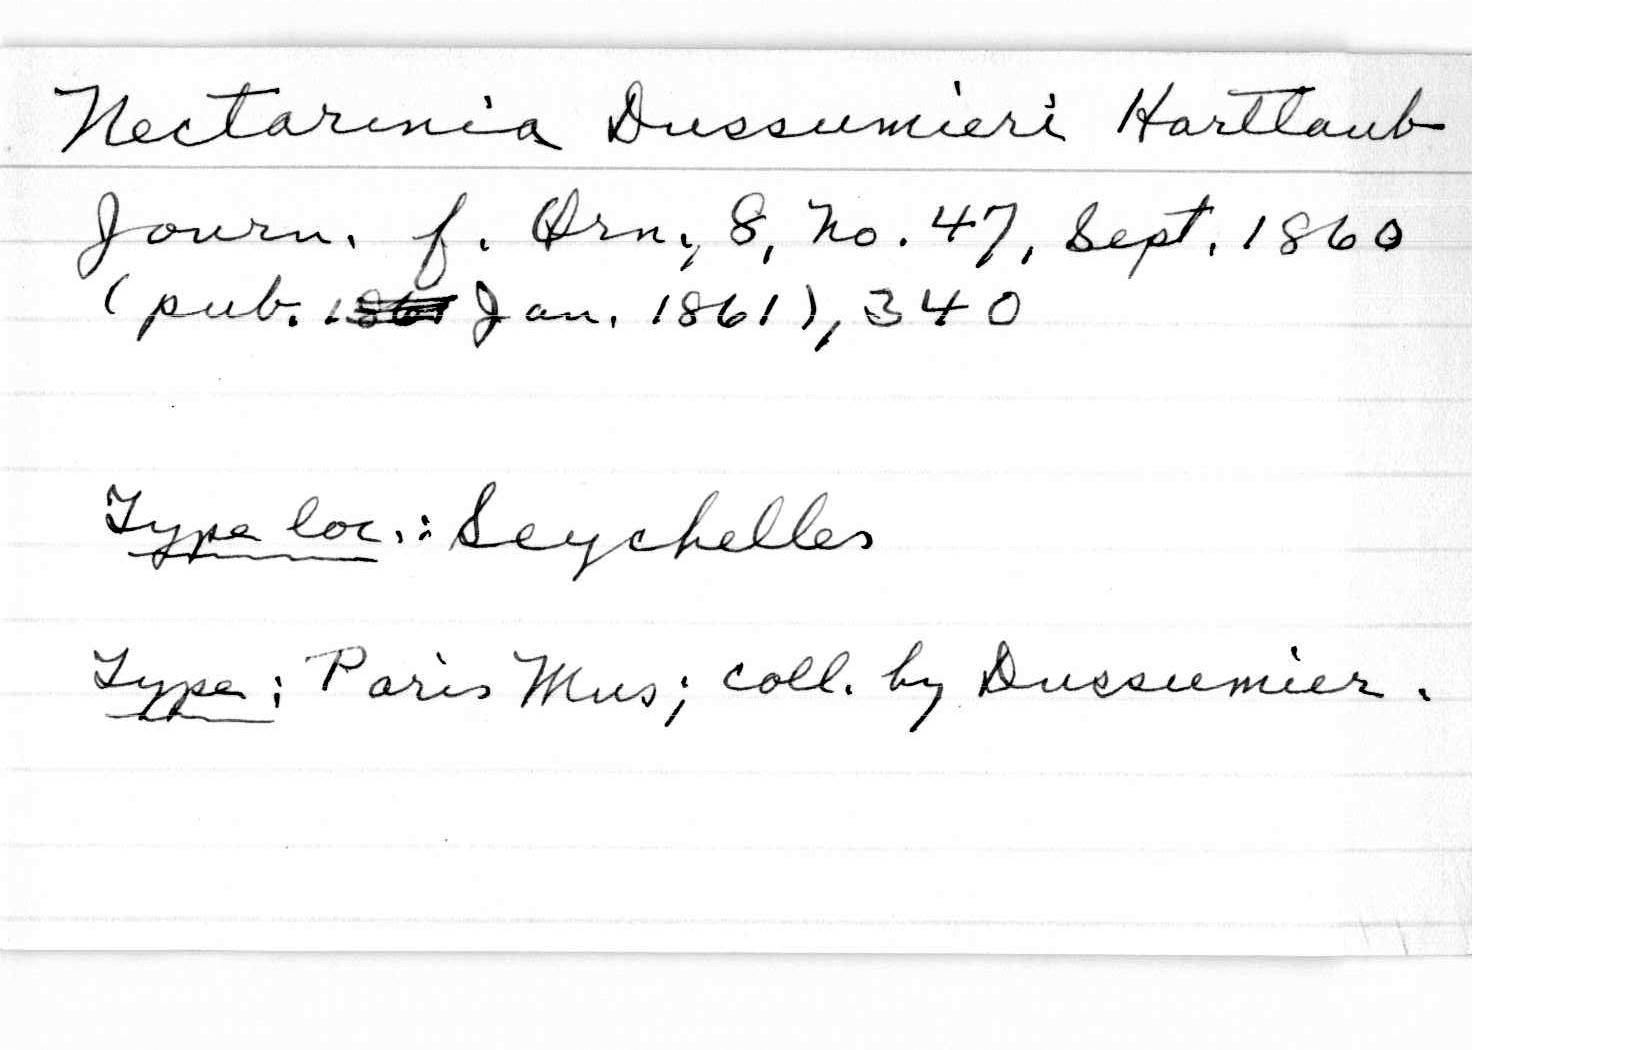 Nectarinia Dussumieri Hartlaub
Journ. f. Orn., 8, No. 47, Sept. 1860
(pub. 1861 Jan. 1861), 340
Type loc.: Seychelles
Type: Paris Mus; coll. by Dussumier.